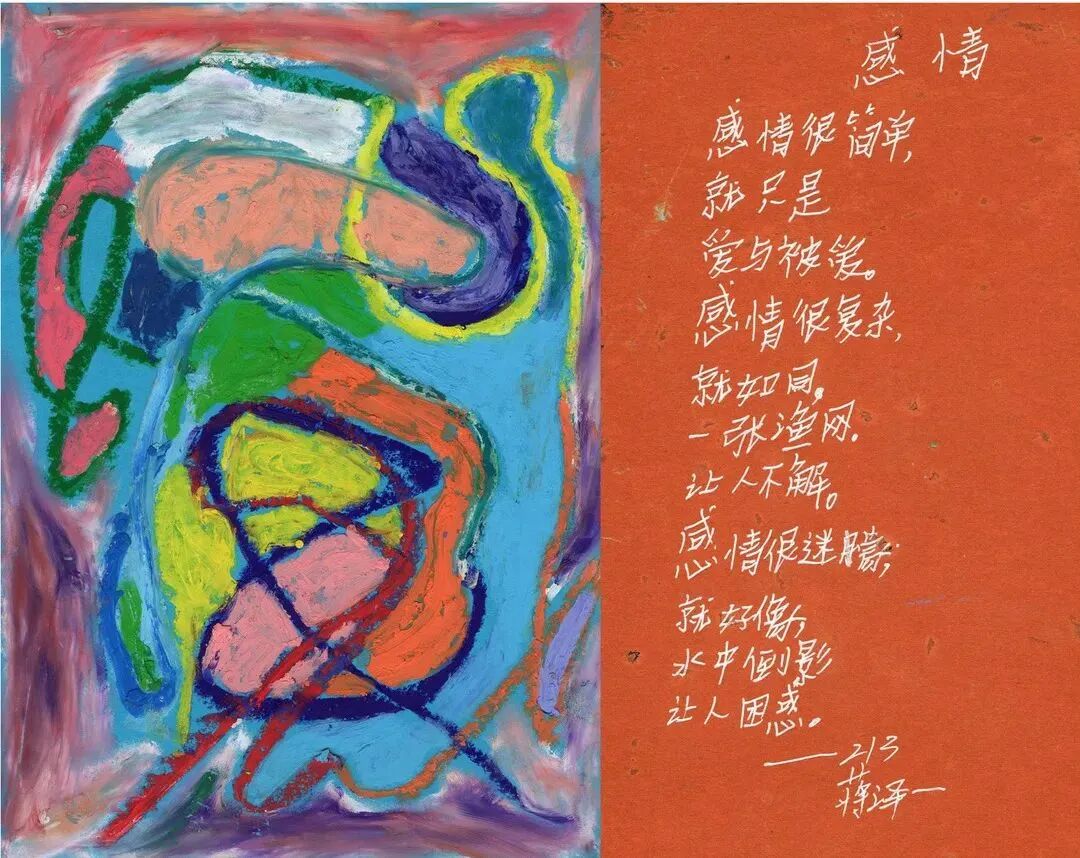 感情
感情很简单,
就只是
爱与被爱。
感情很复杂,
就如同,
一张渔网.
让人不解。
感情很迷朦,
就好像,
水中倒影
让人困惑。
——213
蒋泽一